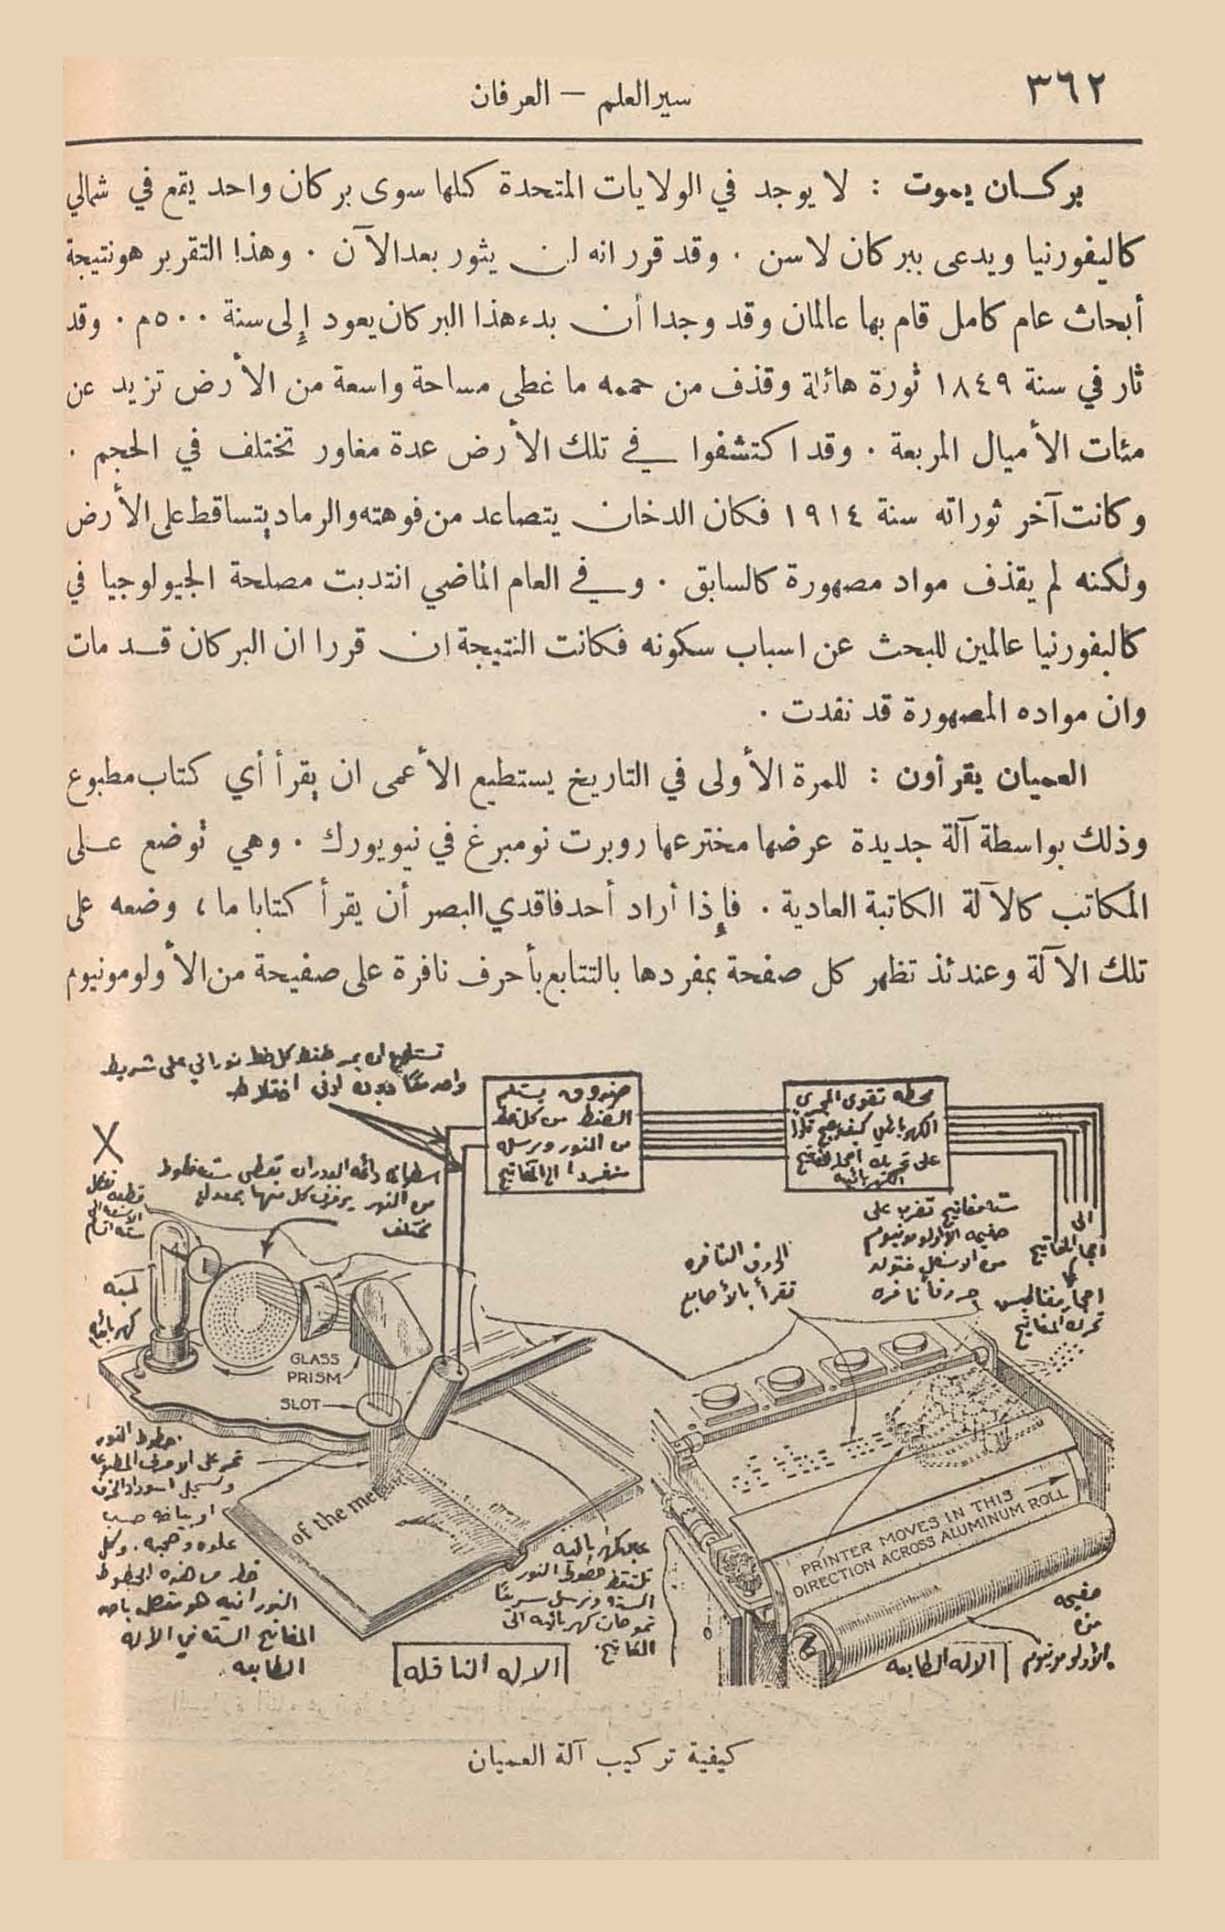 ٣٦٢
سير العلم — العرفان
بركان يموت : لا يوجد في الولايات المتحدة كلها سوى بركان واحد يقع في شمالي
كاليفورنيا ويدعى ببركان لاسن . وقد قرر انه لن يثور بعد الآن . وهذا التقرير هو نتيجة
أبحاث عام كامل قام بها عالمان وقد وجدا أن بدء هذا البركان يعود إلى سنة ٥٠٠ م . وقد
ثار في سنة ١٨٤٩ ثورة هائلة وقذف من حممه ما غطى مساحة واسعة من الأرض تزيد عن
مئات الأميال المربعة . وقد اكتشفوا في تلك الأرض عدة مغاور تختلف في الحجم .
وكانت آخر ثوراته سنة ١٩١٤ فكان الدخان يتصاعد من فوهته والرماد يتساقط على الأرض
ولكنه لم يقذف مواد مصهورة كالسابق . وفي العام الماضي انتدبت مصلحة الجيولوجيا في
كاليفورنيا عالمين للبحث عن اسباب سكونه فكانت النتيجة ان قررا ان البركان قد مات
وان مواده المصهورة قد نفدت .
العميان يقرأون : للمرة الأولى في التاريخ يستطيع الأعمى ان يقرأ أي كتاب مطبوع
وذلك بواسطة آلة جديدة عرضها مخترعها روبرت نومبرغ في نيويورك . وهي توضع على
المكاتب كالآلة الكاتبة العادية . فإذا أراد أحد فاقدي البصر أن يقرأ كتابا ما ، وضعه على
تلك الآلة وعندئذ تظهر كل صفحة بمفردها بالتتابع بأحرف نافرة على صفيحة من الأولومونيوم
صندوق يستلم
الضغط من كل خط
من النور ويرسله
منفردا الى المفاتيح
محطه تقوي المجرى
الى
الحروف النافره
تقرأ بالأصابع
سته مفاتيح تضرب على
صفيحه الاولومونيوم
من الاسفل فتولد
احرفاً نافره
تحرك المفاتيح
لمبه
كهربائيه
GLASS
PRISM
SLOT
خطوط النور
of the me
PRINTER MOVES IN THIS
DIRECTION ACROSS ALUMINUM ROLL
صفيحه
من
الاولومونيوم
الاله الطابعه
الاله الناقله
كيفية تركيب آلة العميان